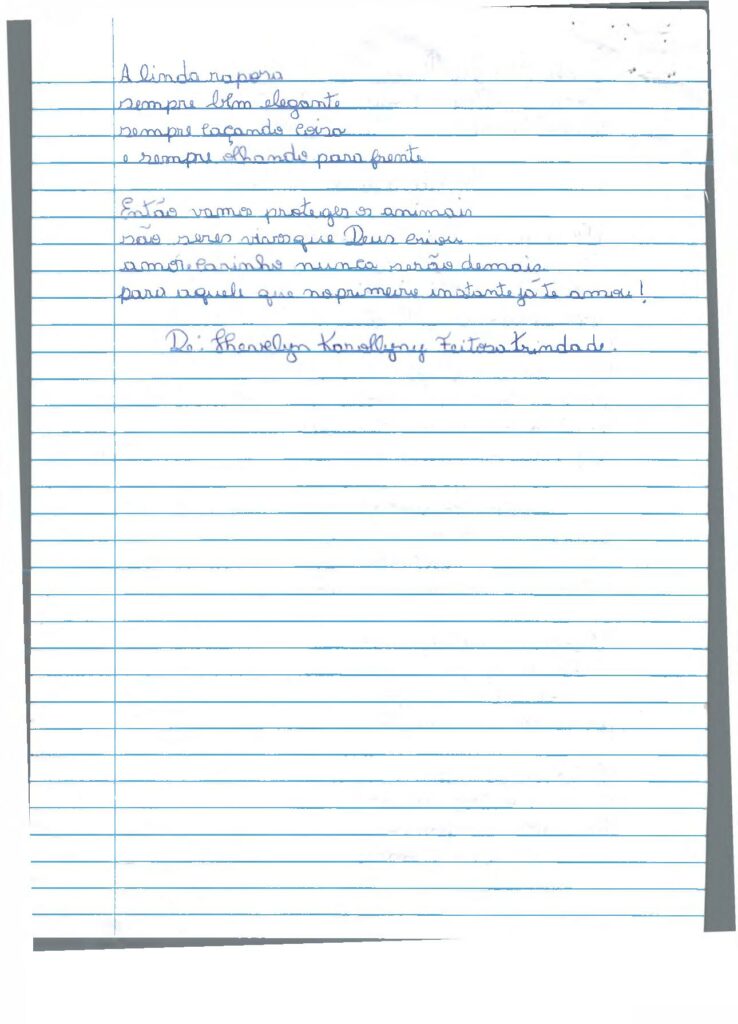 A linda raposa
sempre bem elegante
sempre caçando coisa
e sempre olhando para frente
Então vamos proteger os animais
são seres vivos que Deus criou
amor e carinho nunca serão demais
para aquele que no primeiro instante já te amou!
De: Karollyny Feitosa Trindade.